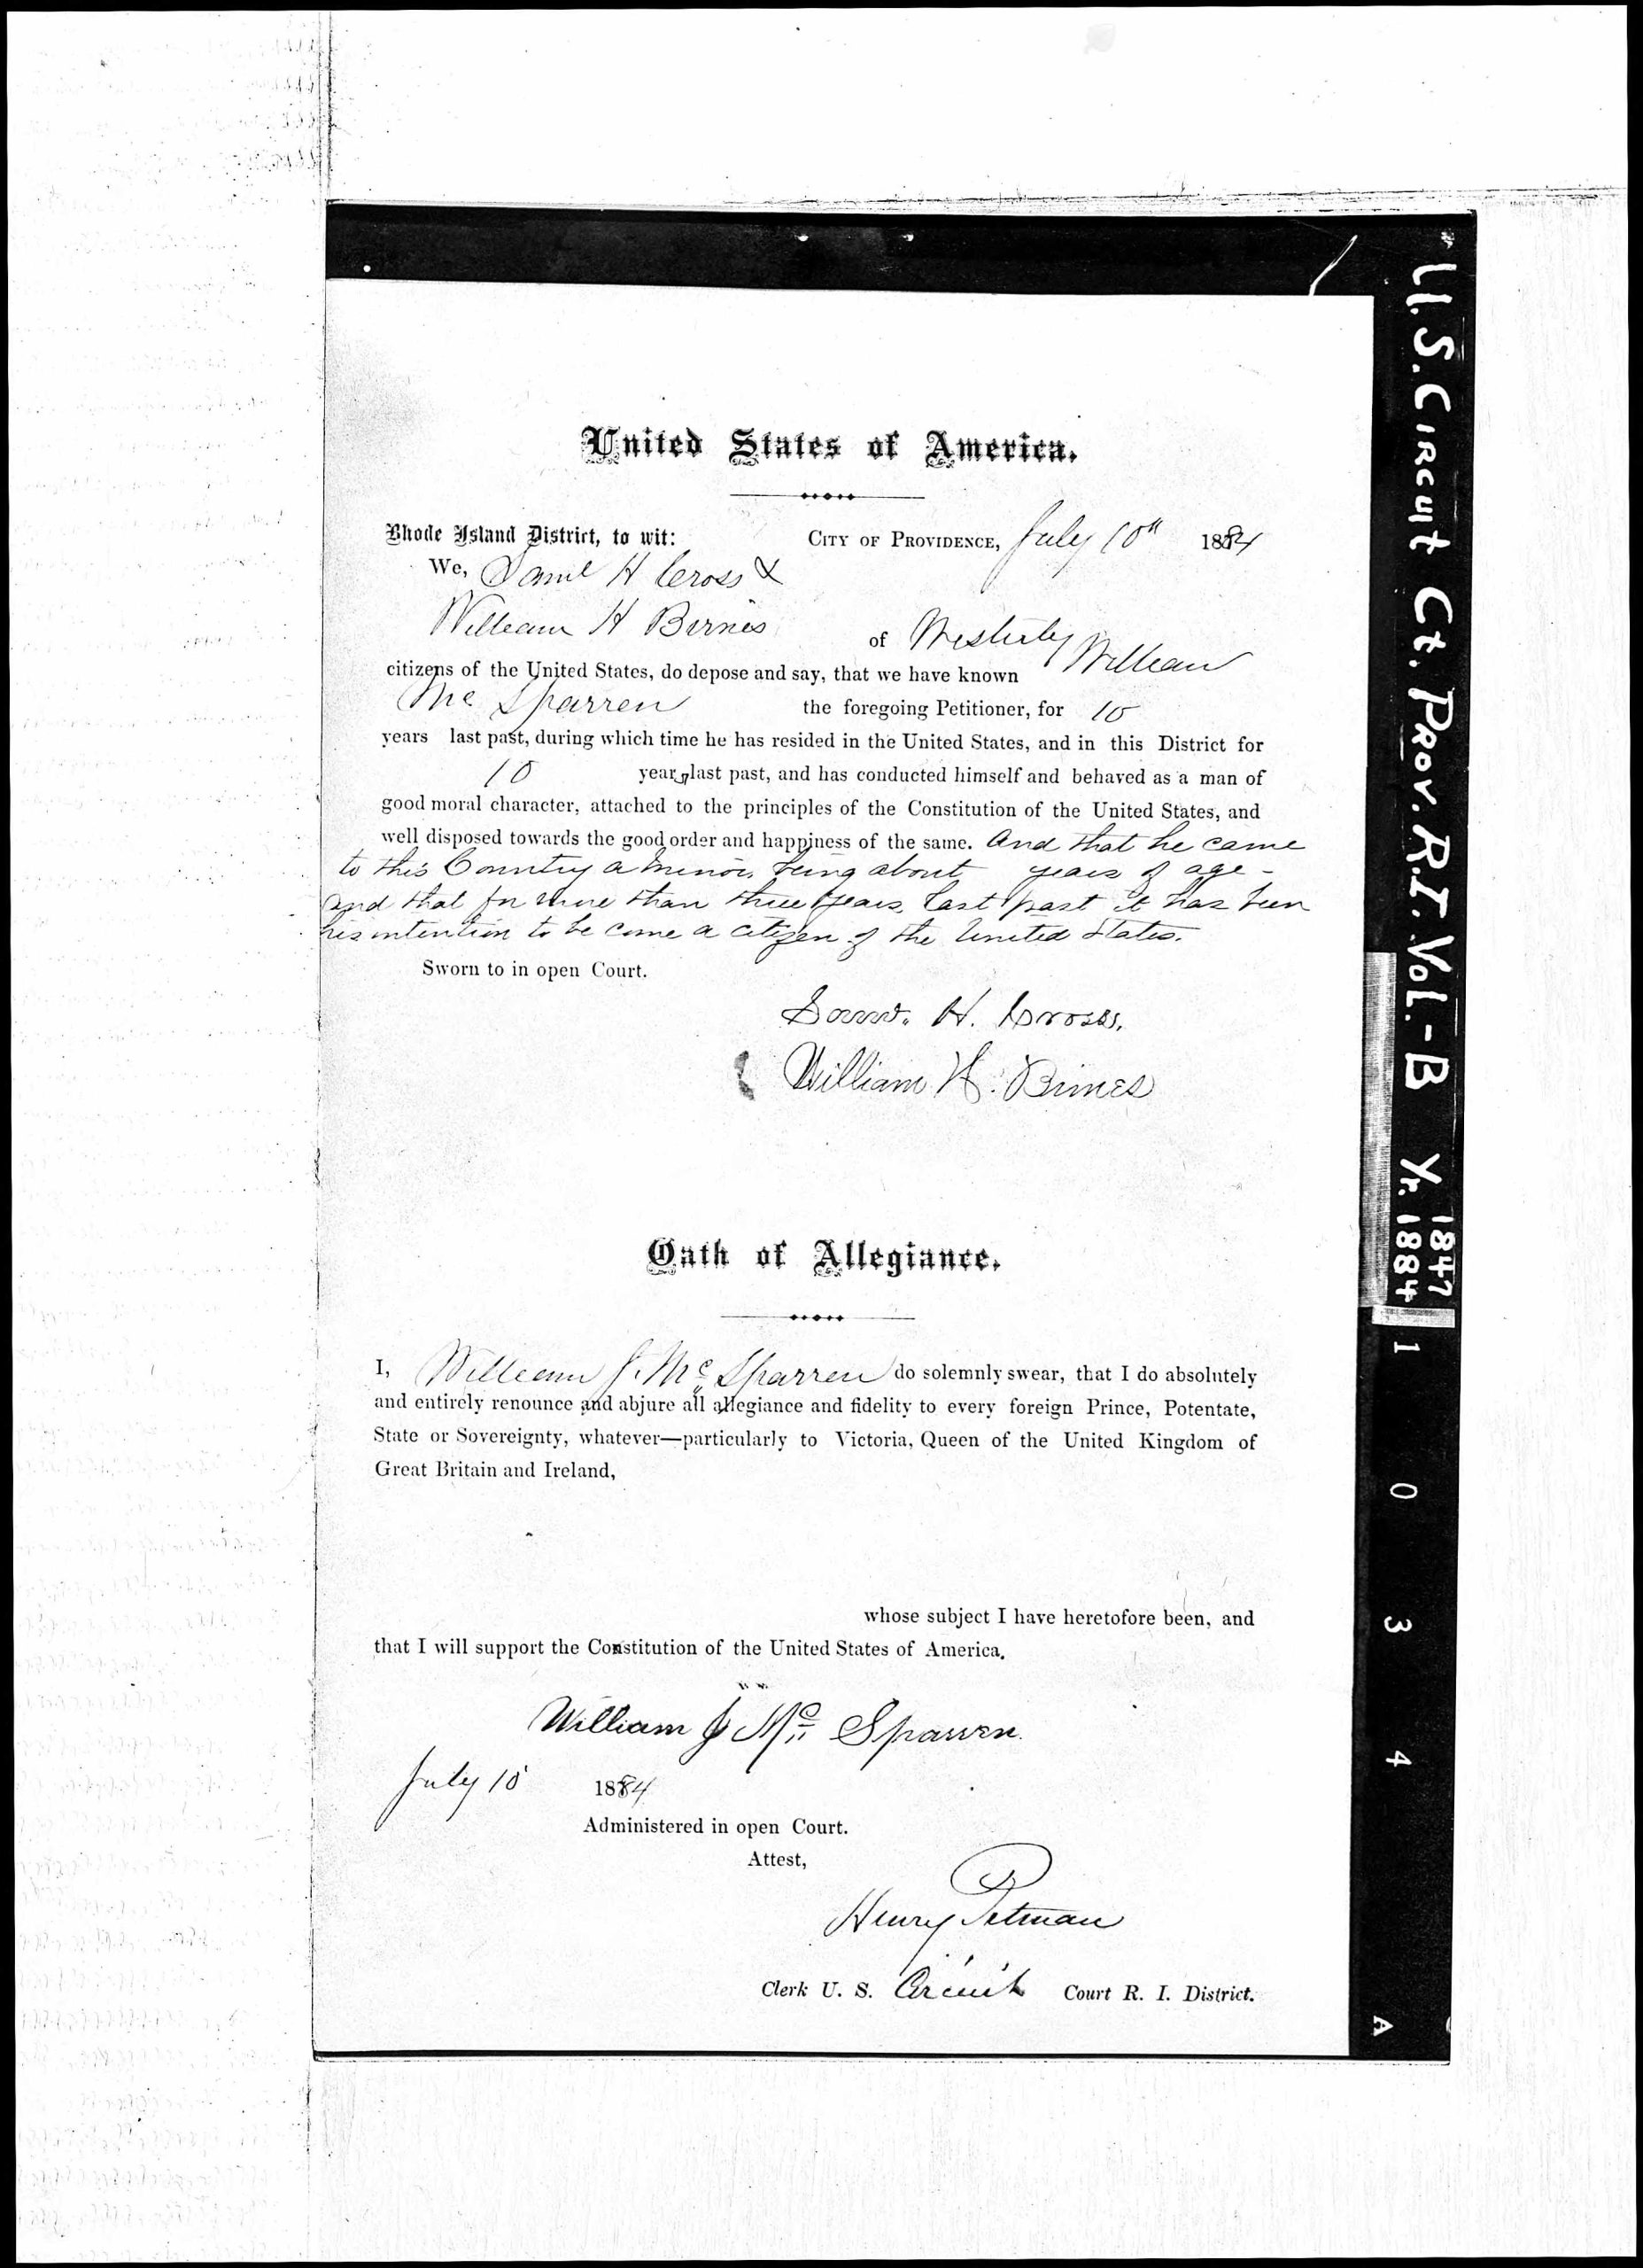 United States of America.
Rhode Island District, to wit: CITY OF PROVIDENCE, July 10th 1884
We, Saml H Cross &
William H Birnes of Westerly
citizens of the United States, do depose and say, that we have known William
Mc Sparren the foregoing Petitioner, for 10
years last past, during which time he has resided in the United States, and in this District for
10 years last past, and has conducted himself and behaved as a man of
good moral character, attached to the principles of the Constitution of the United States, and
well disposed towards the good order and happiness of the same. And that he came
to this Country a minor, being about years of age -
and that for more than three years, last past it has been
his intention to be come a citizen of the United States.
Sworn to in open Court.
Saml. H. Cross.
William H. Birnes
Oath of Allegiance.
I, William J. Mc Sparren do solemnly swear, that I do absolutely
and entirely renounce and abjure all allegiance and fidelity to every foreign Prince, Potentate,
State or Sovereignty, whatever—particularly to Victoria, Queen of the United Kingdom of
Great Britain and Ireland,
whose subject I have heretofore been, and
that I will support the Constitution of the United States of America.
William J Mc Sparren
July 10 1884
Administered in open Court.
Attest,
Henry Pitman
Clerk U. S. Circuit Court R. I. District.
U.S. CIRCUIT Ct. PROV. R.I. VOL.-B Yr. 1847 1884
1 0 3 4 A